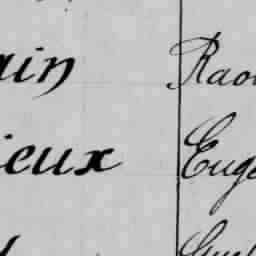 ain Raou
ieux Euge